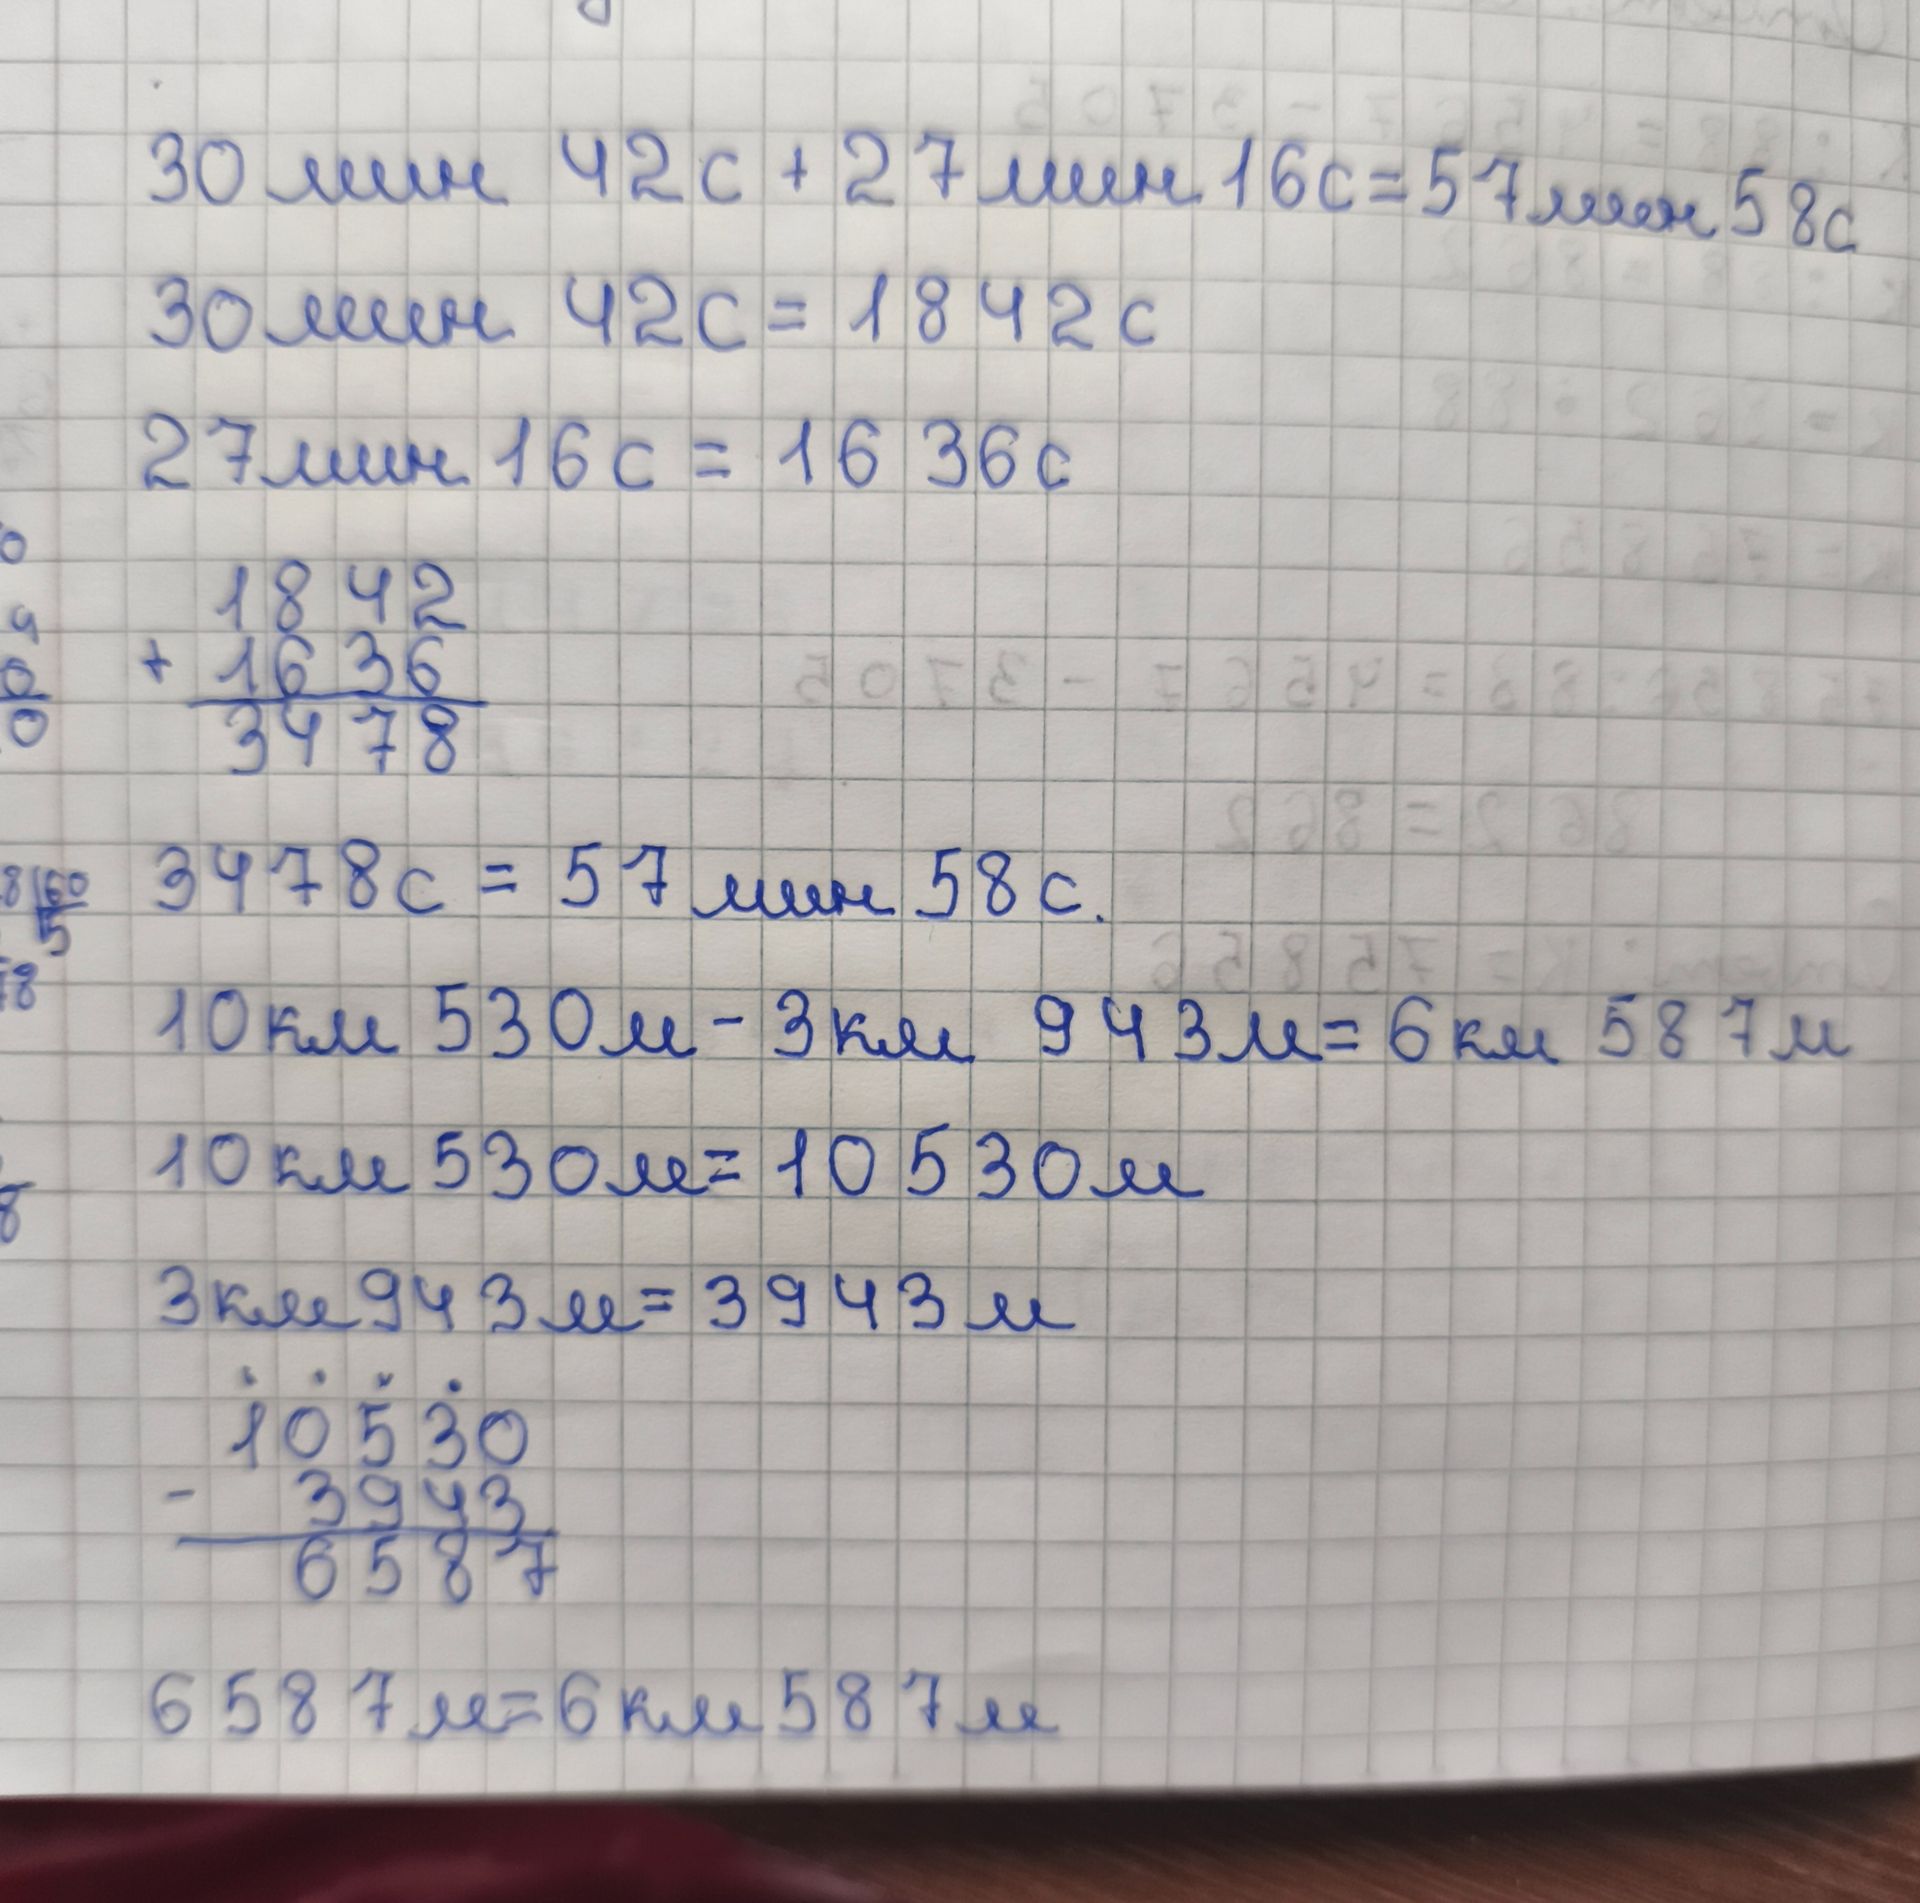 30 мин 42с + 27 мин 16с = 57 мин 58с
30 мин 42с = 1842с
27 мин 16с = 1636с
1842
+ 1636
3478
3478с = 57 мин 58с.
10 км 530 м - 3 км 943 м = 6 км 587 м
10 км 530 м = 10530 м
3 км 943 м = 3943 м
10530
- 3943
6587
6587 м = 6 км 587 м